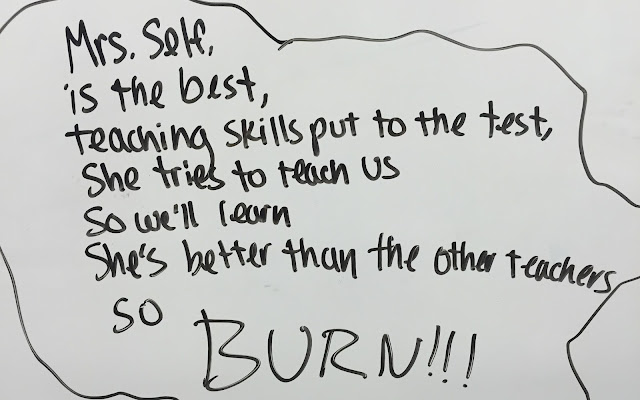 Mrs. Self,
is the best,
teaching skills put to the test,
She tries to teach us
So we'll learn
She's better than the other teachers
so
BURN!!!